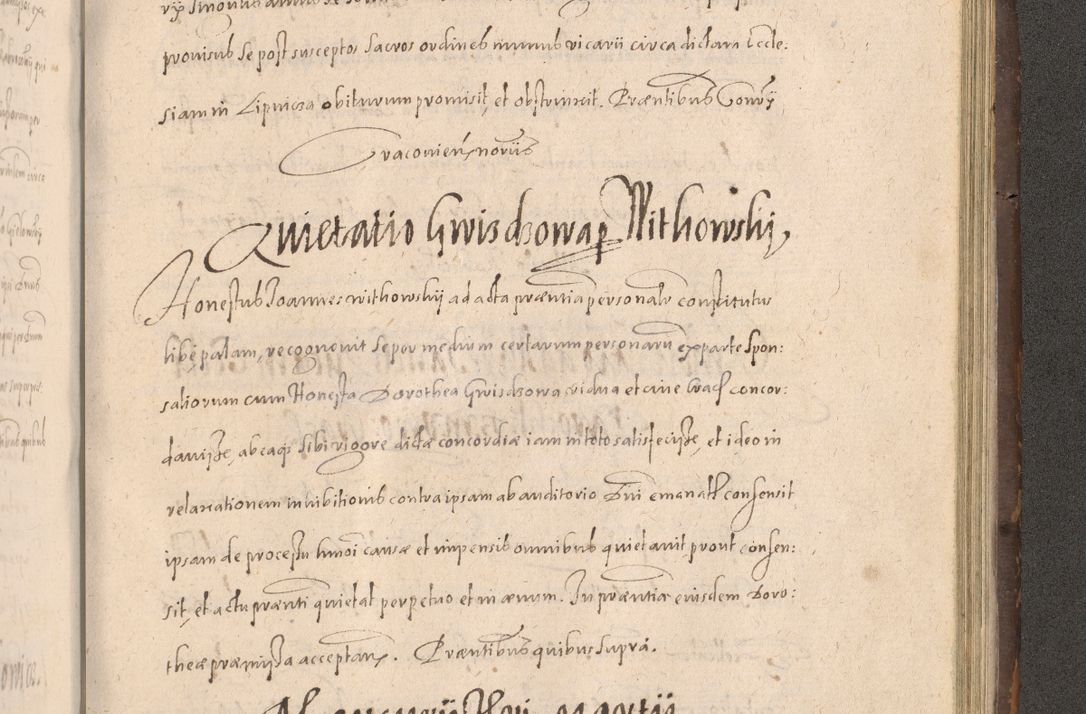 prouisub se post susceptos sacros ordineb munub vicarii circa dictam Eccle:
siam in Lipnicza obiturum promisit, et obstrinxit. Præntibus Gonrÿ
Cracovien, noriis
Quietatio Gwisdzowa per Withowski,
Honestub Ioannes withowskij ad acta præntia personalr constitutus
libe palam, recognouit se per medium certarum personarū ex parte spon:
saliorum cum Honesta Dorothea Gwisdzowa vidua et ciue Crac concor:
dauisse, ab eaqz sibi vigore dictæ concordiæ iam in toto satisfecisse, et ideo in
relaxationem inhibitionis contra ipsam ab auditorio Dni emanatę consensit
ipsam de processu hmoi causæ et impensis omnibub quietauit prout consen:
sit, et actu prænti quietat perpetuo et in æuum. In præntia eiusdem Doro:
theæ præmissa acceptan. Præntibus quibus supra.